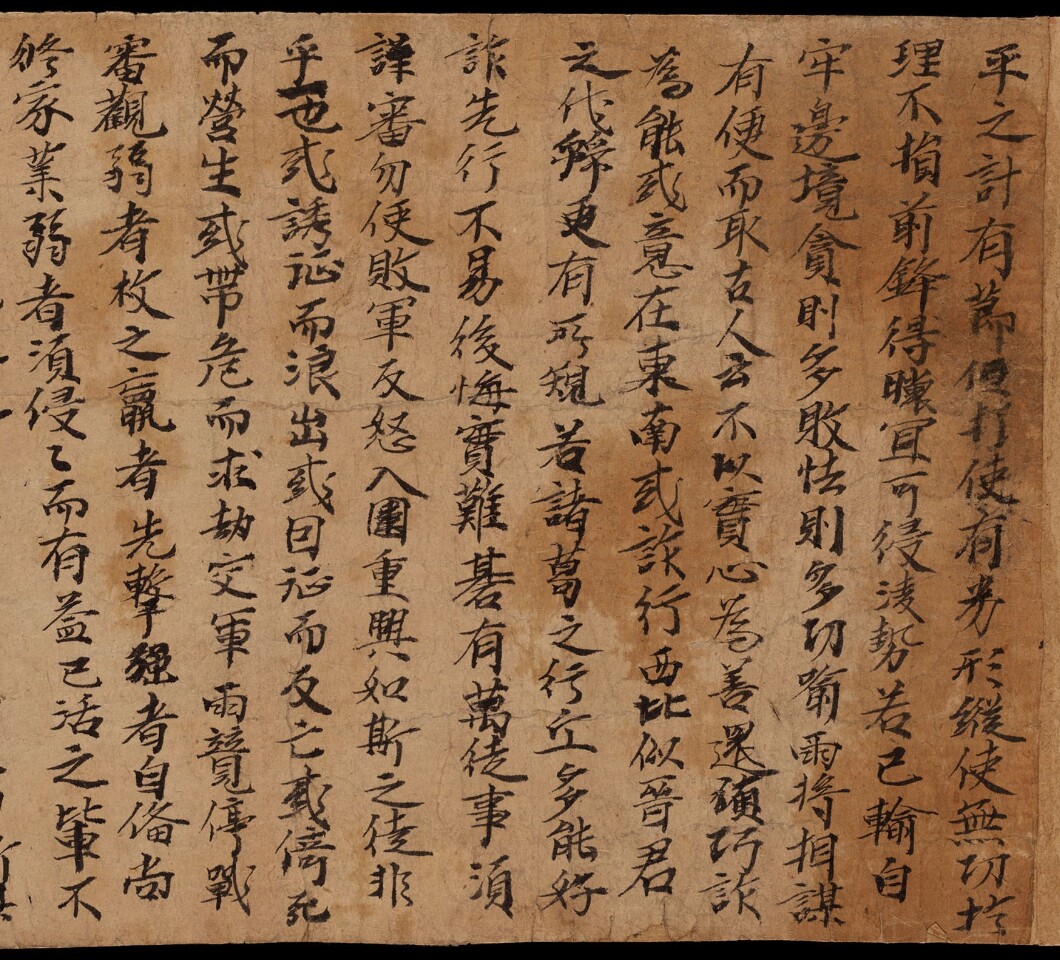 平之計有莭但打使有劣形縱使無功於
理不損前鋒得㬉冝可侵淩勢若已輸自
牢邊境貪則多敗怯則多功喻兩將相謀
有便而取古人云不以實心為善還須巧詐
為能或意在東南或詐行西北似晉君
之伐虢更有所規若諸葛之行丘多能好
詐先行不易後悔實難碁有萬徒事須
謹審勿便敗軍反怒入圍重興如斯之徒非
乎一也或誘征而浪出或因征而反亡或倚死
而營生或帶危而求劫交軍兩競停戰
審觀弱者枚之羸者先擊强者自俻尚
修家業弱者須侵〻而有益已活之輩不